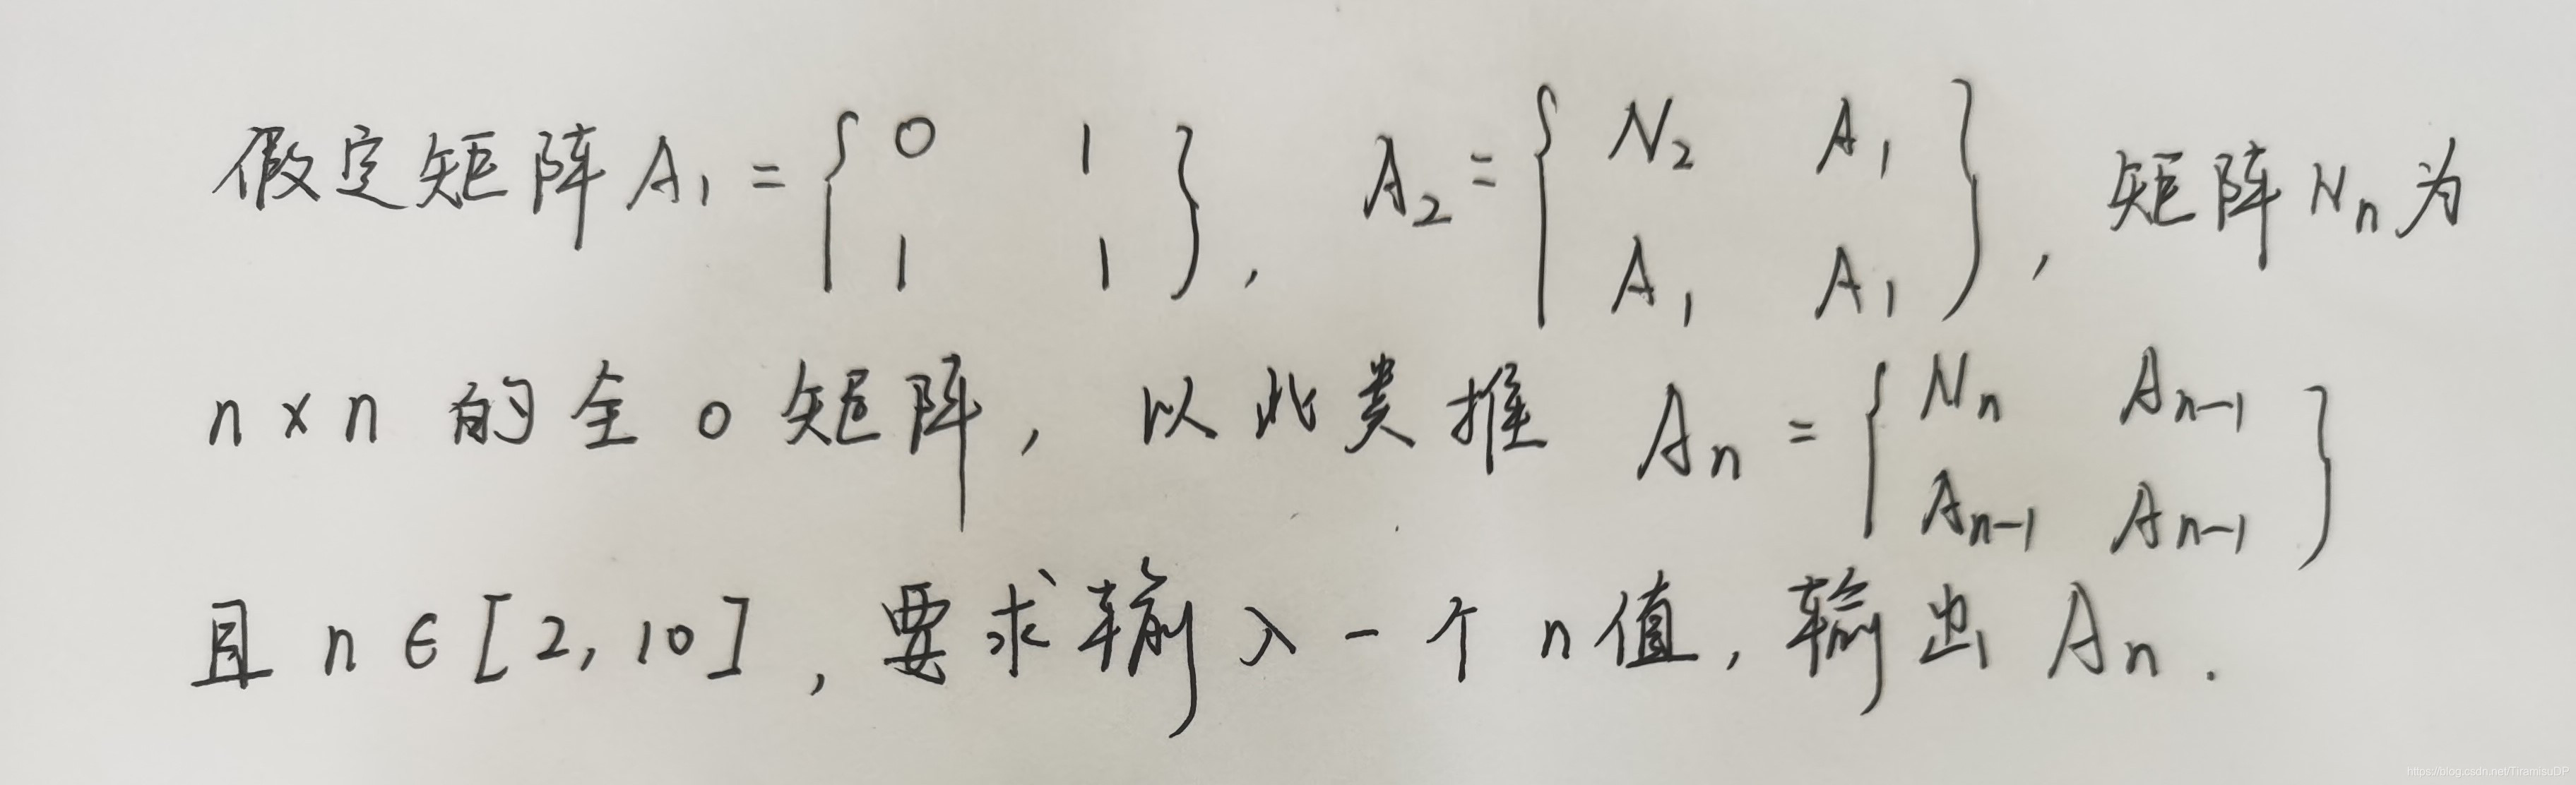 假定矩阵 A₁ = { 0 1 1 1 }, A₂ = { N₂ A₁ A₁ A₁ }, 矩阵 Nₙ 为
n × n 的全 0 矩阵, 以此类推 Aₙ = { Nₙ Aₙ₋₁ Aₙ₋₁ Aₙ₋₁ }
且 n ∈ [2, 10], 要求输入一个 n 值, 输出 Aₙ.
https://blog.csdn.net/TiramisuDP